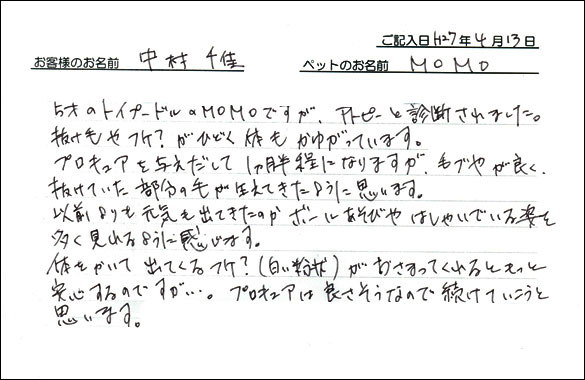 ご記入日 H27年4月13日
お客様のお名前 中村 千佳 ペットのお名前 MOMO
5才のトイプードルのMOMOですが、アトピーと診断されました。
抜け毛やフケ?がひどく体もかゆがっています。
プロキュアを与えだして1ヶ月半程になりますが、毛ヅヤが良く、
抜けていた部分の毛が生えてきたように思います。
以前よりも元気も出てきたのかボールあそびやはしゃいでいる姿を
多く見れるように感じます。
体をかいて出てくるフケ?(白い粉状)がおさまってくれるともっと
安心するのですが…。プロキュアは良さそうなので続けていこうと
思います。